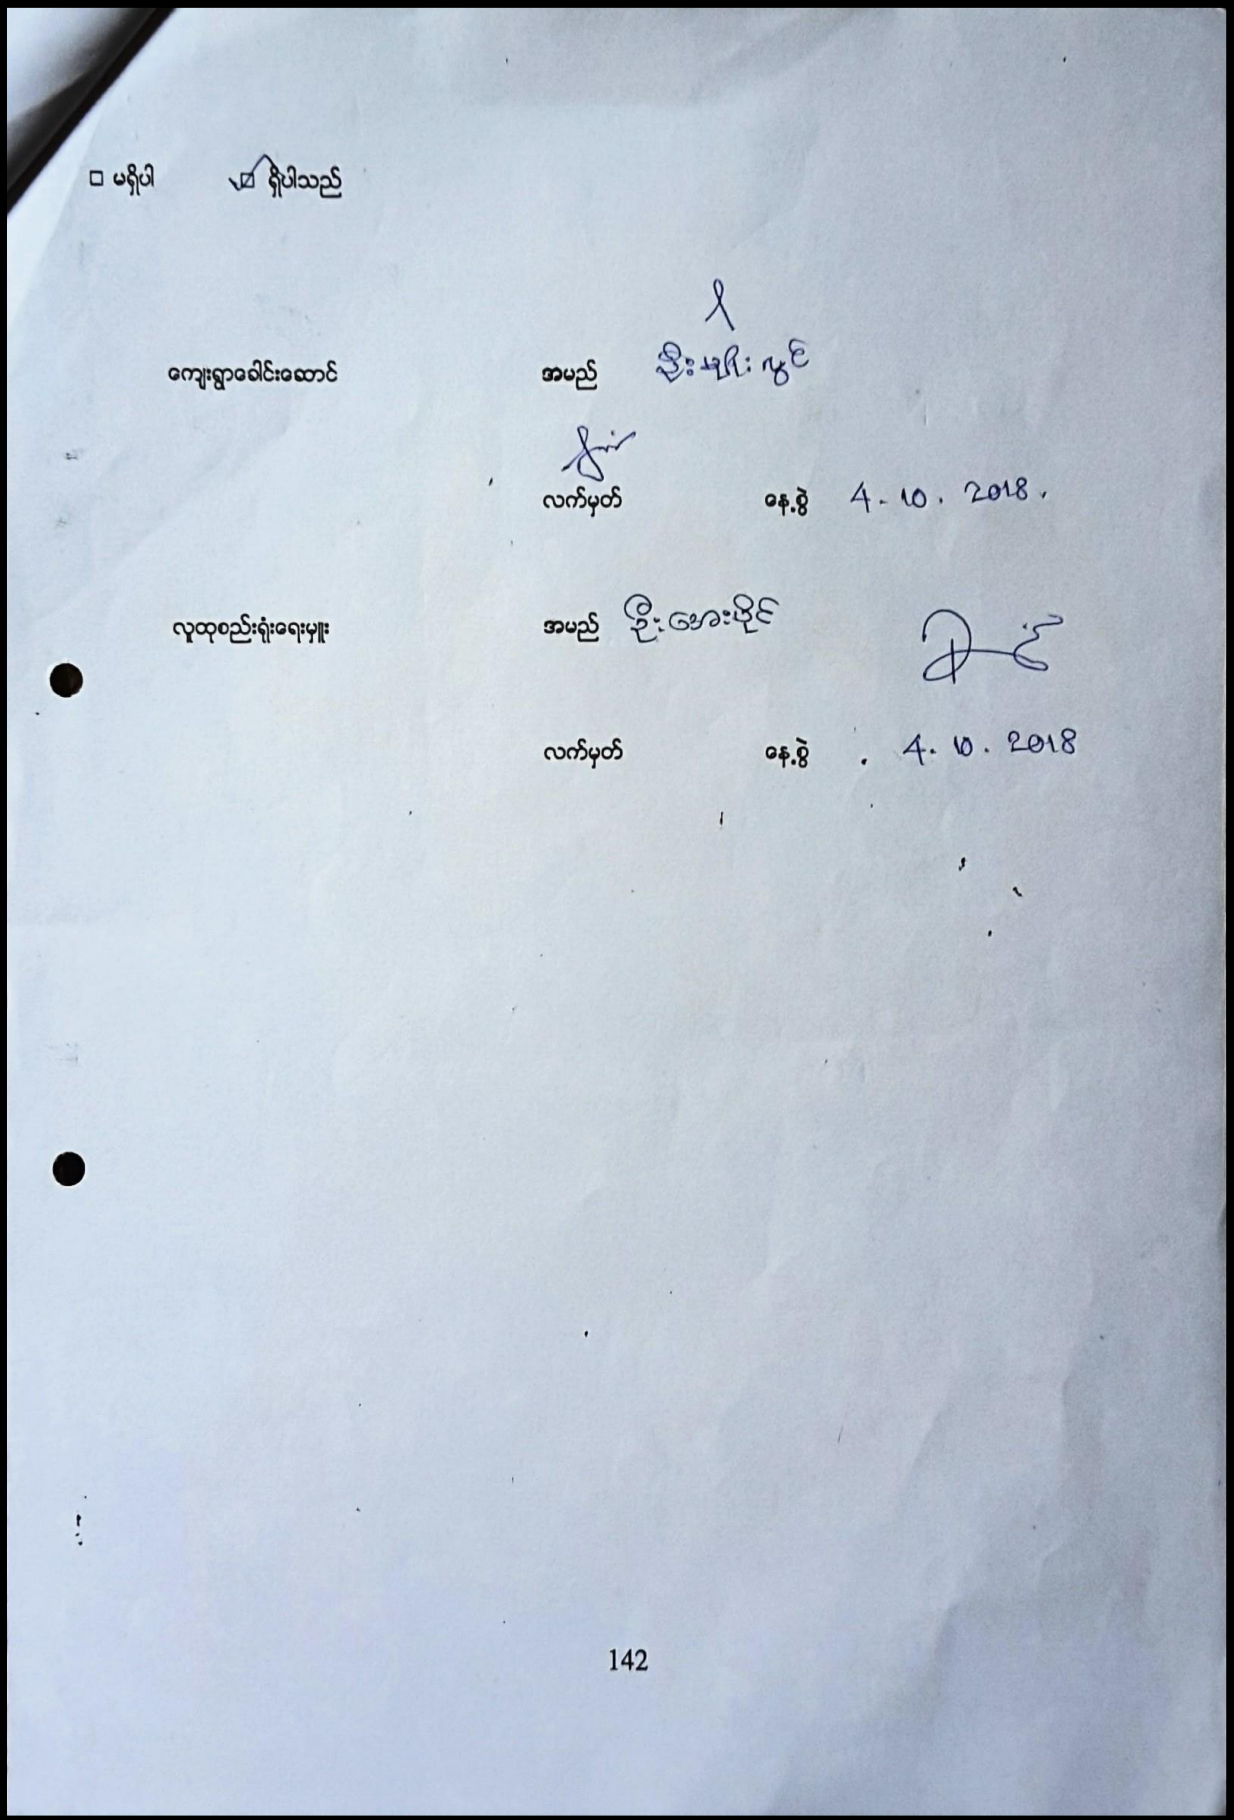 □ မရှိပါ ☑ ရှိပါသည်
ကျေးရွာခေါင်းဆောင် အမည် ဦးမျိုးလွင်
လက်မှတ် နေ့စွဲ 4.10.2018.
လူထုစည်းရုံးရေးမှူး အမည် ဦးအေးဗိုင်
လက်မှတ် နေ့စွဲ 4.10.2018
142